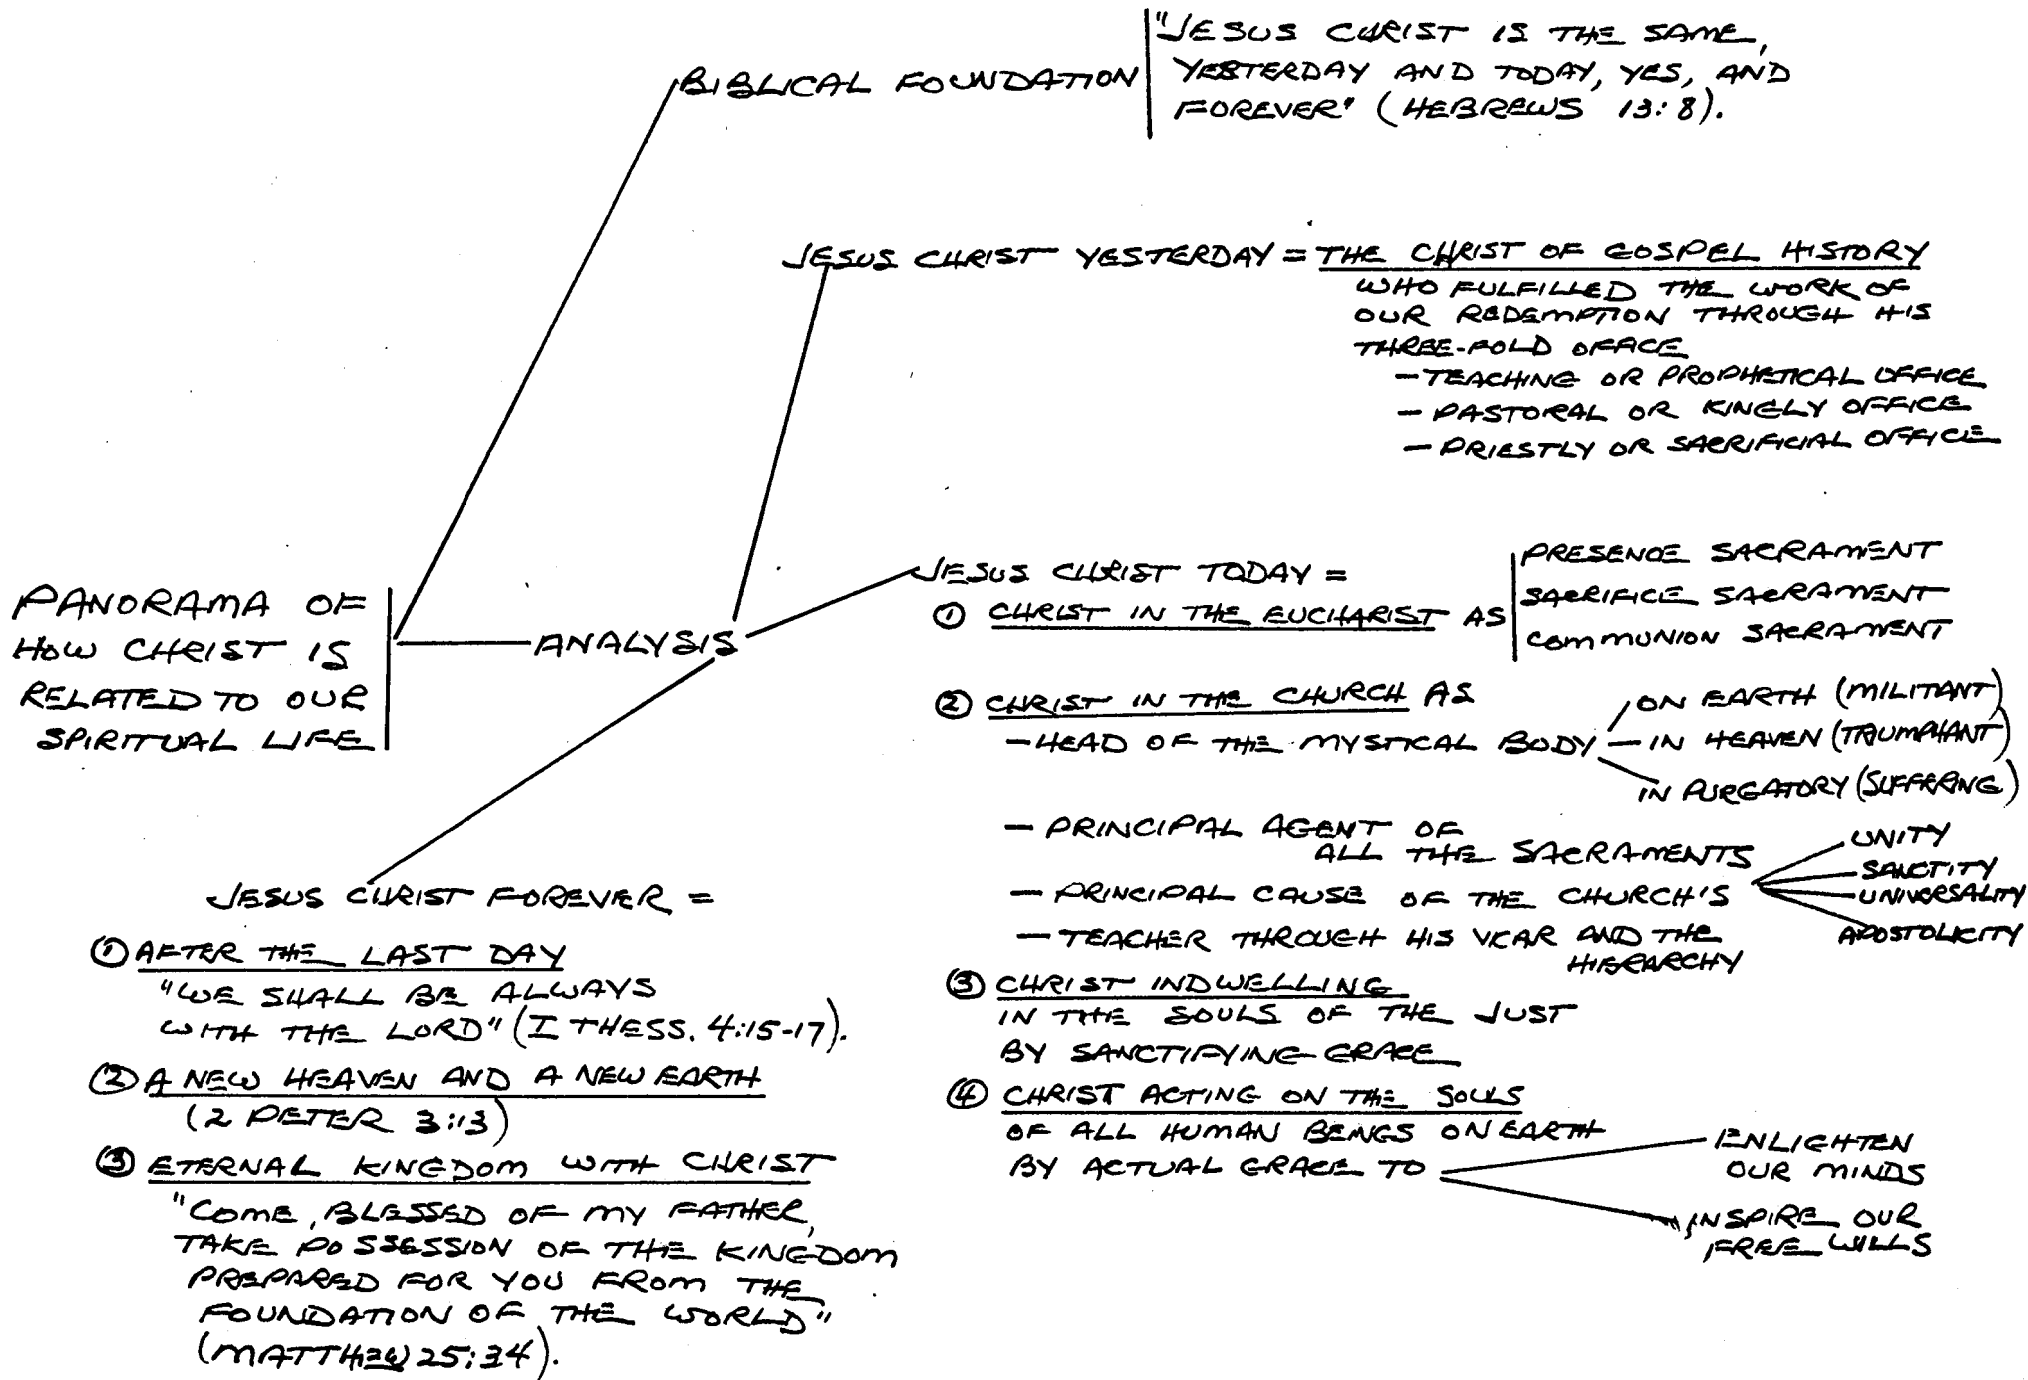 PANORAMA OF
HOW CHRIST IS
RELATED TO OUR
SPIRITUAL LIFE
BIBLICAL FOUNDATION
"JESUS CHRIST IS THE SAME,
YESTERDAY AND TODAY, YES, AND
FOREVER" (HEBREWS 13:8).
ANALYSIS
JESUS CHRIST YESTERDAY = THE CHRIST OF GOSPEL HISTORY
WHO FULFILLED THE WORK OF
OUR REDEMPTION THROUGH HIS
THREE-FOLD OFFICE
- TEACHING OR PROPHETICAL OFFICE
- PASTORAL OR KINGLY OFFICE
- PRIESTLY OR SACRIFICIAL OFFICE
JESUS CHRIST TODAY =
① CHRIST IN THE EUCHARIST AS
PRESENCE SACRAMENT
SACRIFICE SACRAMENT
COMMUNION SACRAMENT
② CHRIST IN THE CHURCH AS
- HEAD OF THE MYSTICAL BODY
ON EARTH (MILITANT)
IN HEAVEN (TRIUMPHANT)
IN PURGATORY (SUFFERING)
- PRINCIPAL AGENT OF
ALL THE SACRAMENTS
- PRINCIPAL CAUSE OF THE CHURCH'S
UNITY
SANCTITY
UNIVERSALITY
APOSTOLICITY
- TEACHER THROUGH HIS VICAR AND THE
HIERARCHY
③ CHRIST INDWELLING
IN THE SOULS OF THE JUST
BY SANCTIFYING GRACE
④ CHRIST ACTING ON THE SOULS
OF ALL HUMAN BEINGS ON EARTH
BY ACTUAL GRACE TO
ENLIGHTEN
OUR MINDS
INSPIRE OUR
FREE WILLS
JESUS CHRIST FOREVER =
① AFTER THE LAST DAY
"WE SHALL BE ALWAYS
WITH THE LORD" (I THESS. 4:15-17).
② A NEW HEAVEN AND A NEW EARTH
(2 PETER 3:13)
③ ETERNAL KINGDOM WITH CHRIST
"COME, BLESSED OF MY FATHER,
TAKE POSSESSION OF THE KINGDOM
PREPARED FOR YOU FROM THE
FOUNDATION OF THE WORLD"
(MATTHEW 25:34).